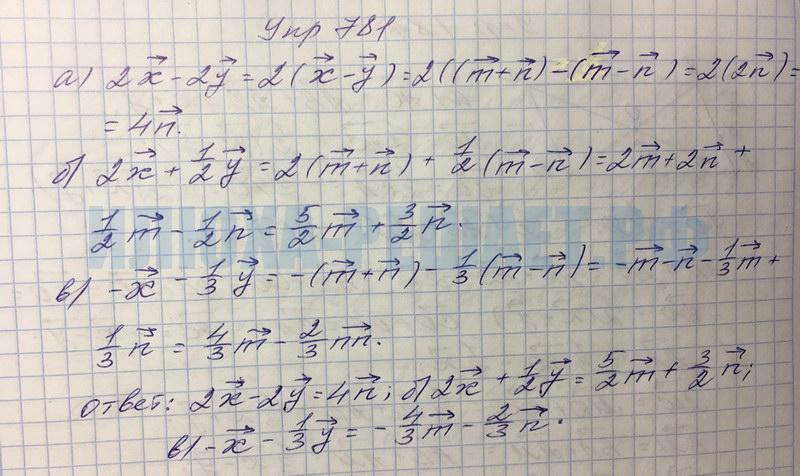 Упр 781
а) 2x⃗ - 2y⃗ = 2(x⃗ - y⃗) = 2((m⃗ + n⃗) - (m⃗ - n⃗) = 2(2n⃗) =
= 4n⃗.
б) 2x⃗ + 1/2 y⃗ = 2(m⃗ + n⃗) + 1/2 (m⃗ - n⃗) = 2m⃗ + 2n⃗ +
1/2 m⃗ - 1/2 n⃗ = 5/2 m⃗ + 3/2 n⃗.
в) -x⃗ - 1/3 y⃗ = -(m⃗ + n⃗) - 1/3 (m⃗ - n⃗) = -m⃗ - n⃗ - 1/3 m⃗ +
1/3 n⃗ = 4/3 m⃗ - 2/3 n⃗n⃗.
ответ: 2x⃗ - 2y⃗ = 4n⃗; б) 2x⃗ + 1/2 y⃗ = 5/2 m⃗ + 3/2 n⃗;
в) -x⃗ - 1/3 y⃗ = - 4/3 m⃗ - 2/3 n⃗.